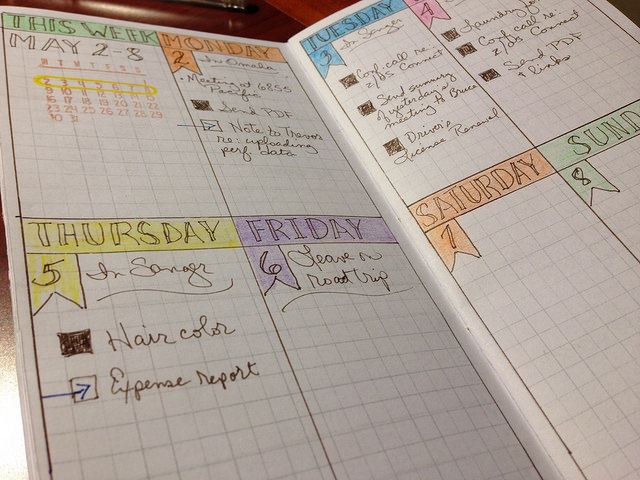 THIS WEEK
MAY 2-8
M T W T F S S
2 3 4 5 6 7 8
9 10 11 12 13 14 15
16 17 18 19 20 21 22
23 24 25 26 27 28 29
30 31
MONDAY
2
In Omaha
• Meeting at 6855
Pacific
Send PDF
Note to Trevor
re: uploading
perf data
TUESDAY
3
In Sanger
Conf. call re.
2/05 Connect
Send summary
of yesterday's
meeting to Bruce
Driver's
License Renewal
4
Conf. call re.
2/05 Connect
Send PDF
+ links
THURSDAY
5
In Sanger
Hair color
Expense report
FRIDAY
6
Leave on
road trip
SATURDAY
7
SUND
8